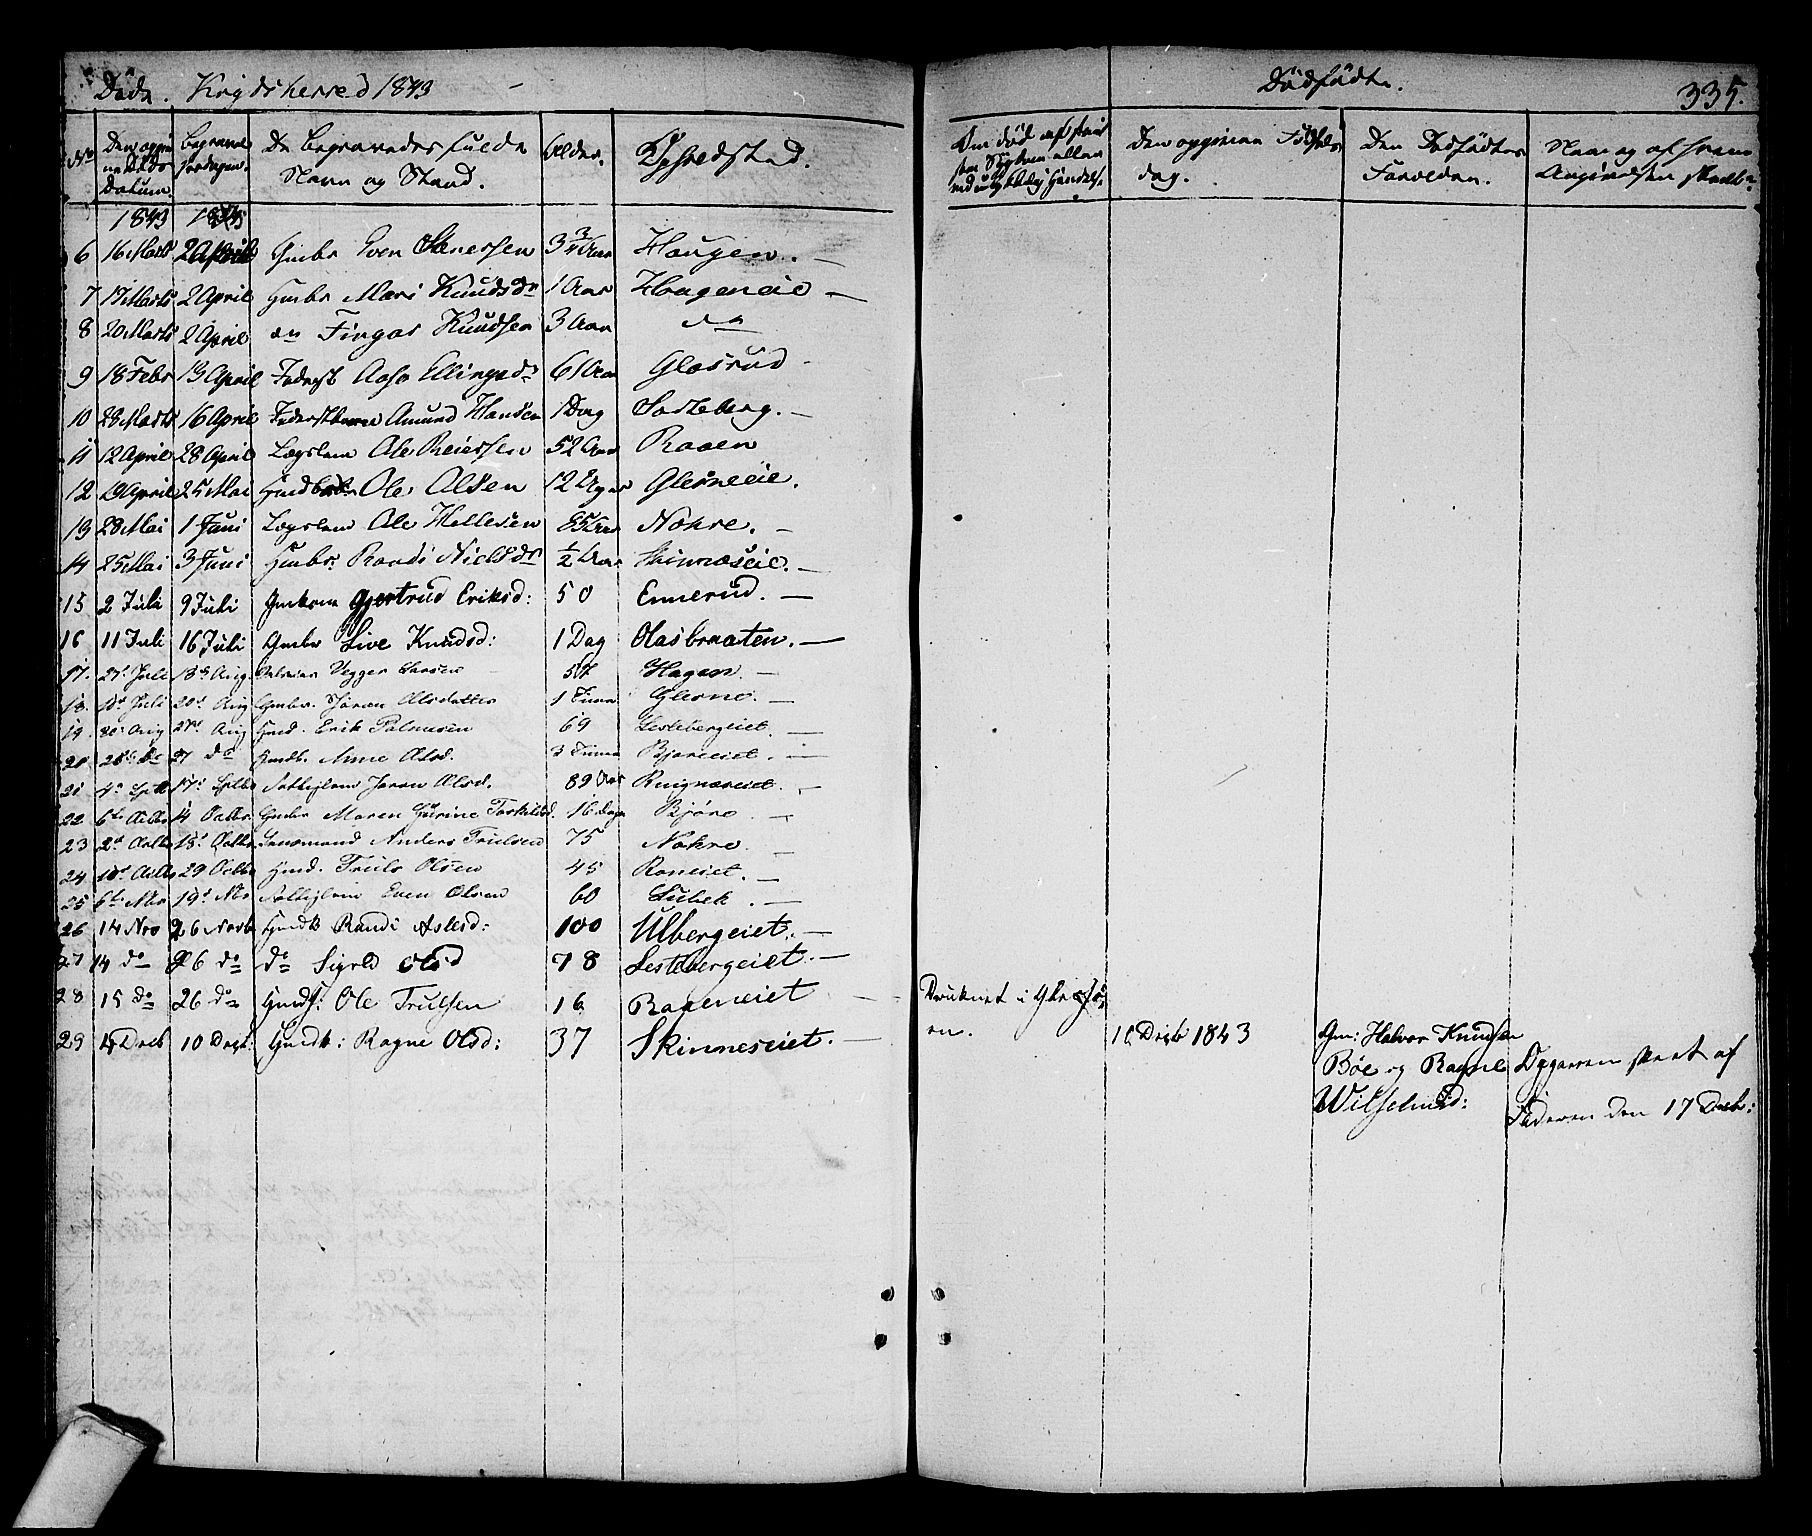 Døde. Krydsherred 1843
No
Den opgivne Døds Datum
Begravelsesdagen.
De Begravedes fulde Navn og Stand.
Alder.
Opholdsted.
1843 1843
6 16 Marts 2 April Gmbr Even Steenersen 3 3/4 Aar Haugen. —
7 17 Marts 2 April Hmbr Mari Knudsdr 1 Aar Hougeneie —
8 20 Marts 2 April do Fingar Knudsen 3 Aar do
9 18 Febr 13 April Fødergk Aase Ellingsdr 61 Aar Glesrud
10 28 Marts 16 April Amund Hansen 1 Dag Sorteberg. —
11 12 April 28 April Lægslem Ole Reiersen 52 Aar Raaen
12 19 April 25 Mai Ole Olsen 12 Uger Glesneeie.
13 28 Mai 1 Juni Lægslem Ole Hellesen 85 Aar Nokre. —
14 25 Mai 3 Juni Hmbr. Randi Nielsdr 1/2 Aar Skinneseie. —
15 2 Juli 9 Juli Gmkone Gjertrud Eriksd: 50 Ennerud. —
16 11 Juli 16 Juli Gmbr Live Knudsd: 1 Dag Olasbraaten. —
17. 27. Juli 13 Aug. Vegger 57 Hagen. —
18. Juli 20 Aug Gmbr. Jøran Olsdatter 1 Time Glesne. —
19. Aug 27 Aug Hmd. Erik Palmesen 69 Sestebergeiet —
20 26 do 27 do Anne Olsd. 3 Timer Bjøreeiet. —
21 4 Septb 17 Septbr Jøran Olsd. 89 Aar Ringneseiet. —
22 6te Octbr Octbr Gmbr Maren Gurine Torkilsd. 16 Dage Bjøre —
23 2d Octbr 15 Octbr Anders Trulsen 75 Nokre. —
24 Octbr 29 Octbr Hmd. Truls Olsen 45 Roneiet. —
25 6te Nov 19d Nov Even Olsen 60 Lubek. —
26 14 Nov 26 Novb Hmdk Randi Aslesd: 100 Ulbergeiet. —
27 14 do 26 do do Sigrld Olsd 78 Sestebergeiet. —
28 15 do 26 do Hmdf: Ole Trulsen 16 Rageneiet —
29 Dceb 10 Dcbr: Hmdk: Ragne Olsd: 37 Skinneseiet. —
Dødfødte. 335.
Om død af
Den opgivne Fødselsdag.
Den Dødfødtes Forældre.
Naar og af hvem Angivelsen skeet
Druknet i
en.
Decbr 1843
Gm: Halvor Knudsen
Bøe og Ragne
Opgaven skeet af
Faderen den 17 Decbr: